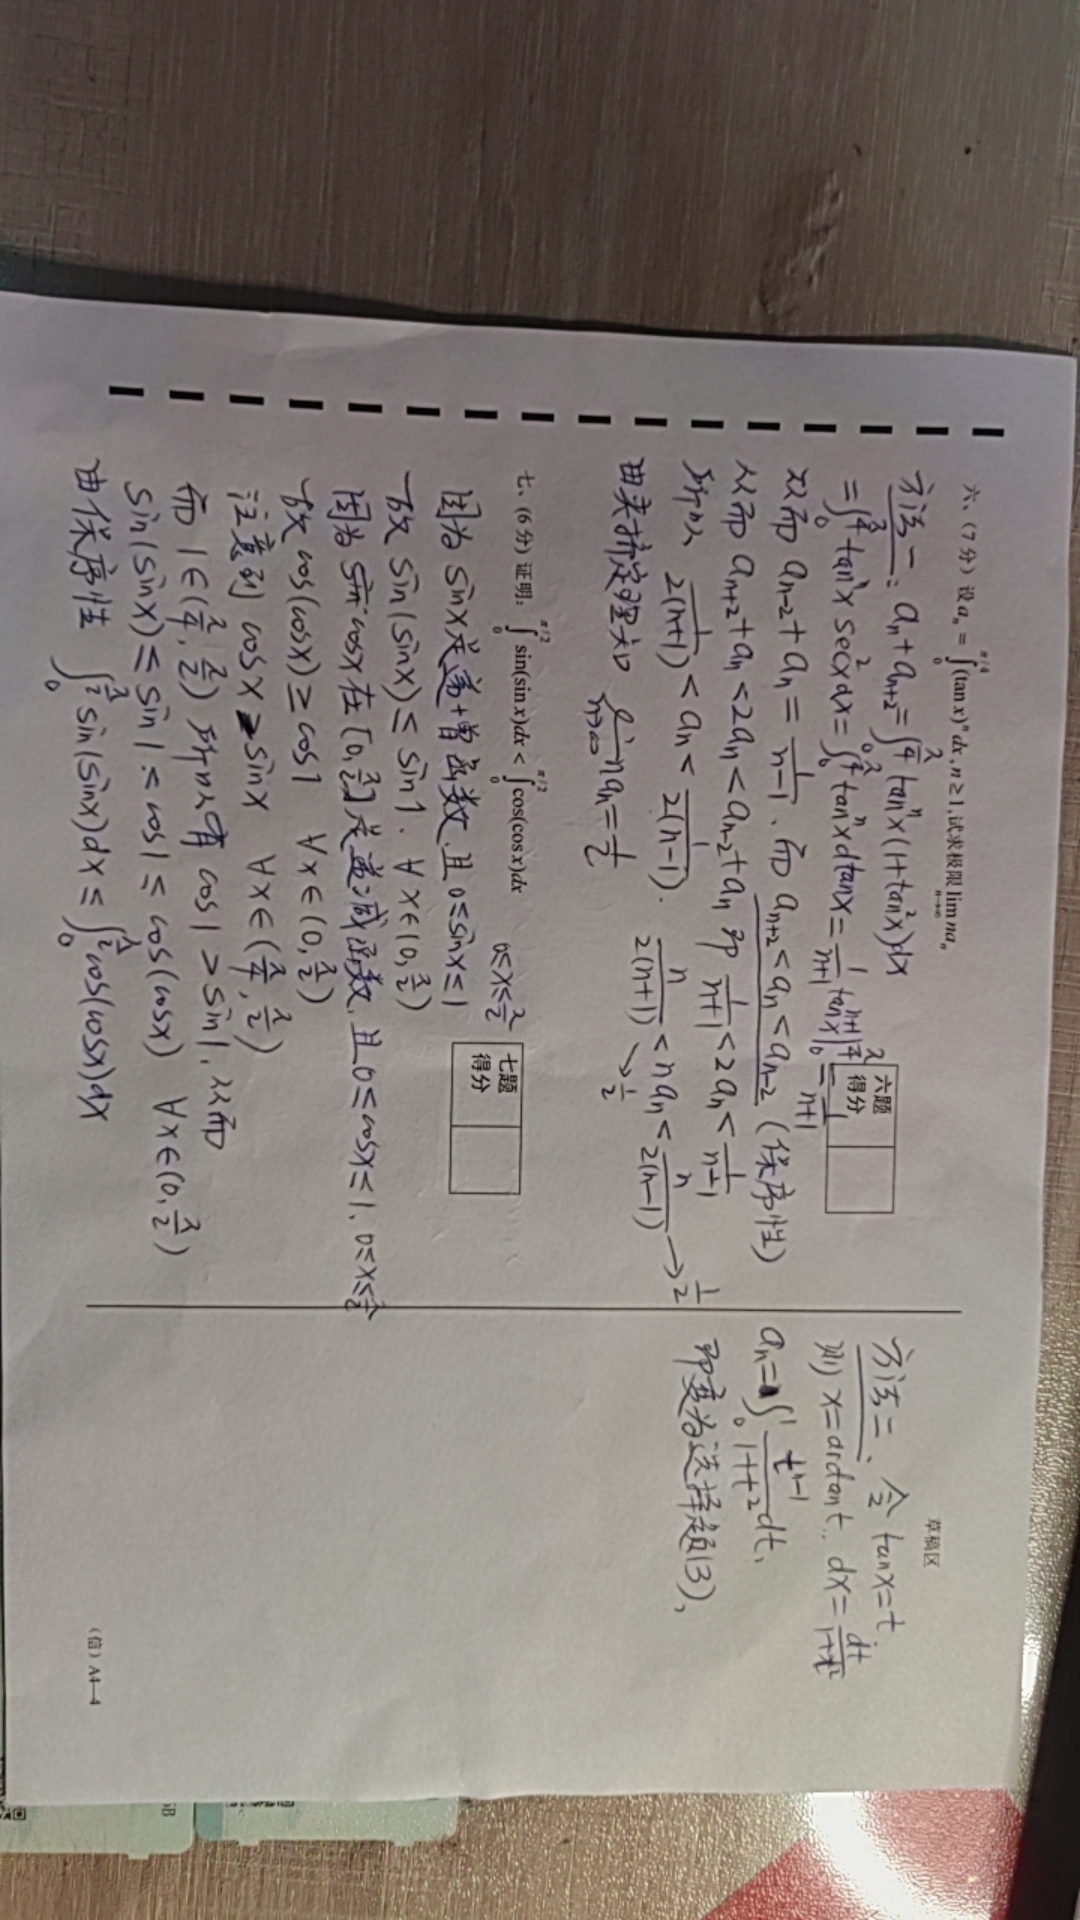 六、(7分) 设 aₙ = ∫₀^{π/4}(tan x)ⁿ dx, n ≥ 1, 试求极限 lim_{n→∞} naₙ
六题得分
方法一: aₙ + aₙ₊₂ = ∫₀^{π/4} tanⁿx(1+tan²x)dx
= ∫₀^{π/4} tanⁿx sec²x dx = ∫₀^{π/4} tanⁿx dtanx = 1/(n+1) tanⁿ⁺¹x |₀^{π/4} = 1/(n+1)
从而 aₙ₋₂ + aₙ = 1/(n-1). 而 aₙ₊₂ < aₙ < aₙ₋₂ (保序性)
从而 aₙ₊₂ + aₙ < 2aₙ < aₙ₋₂ + aₙ 即 1/(n+1) < 2aₙ < 1/(n-1)
所以 1/(2(n+1)) < aₙ < 1/(2(n-1)). n/(2(n+1)) < naₙ < n/(2(n-1)) → 1/2
→ 1/2
由夹挤定理知 lim_{n→∞} naₙ = 1/2
七、(6分) 证明: ∫₀^{π/2} sin(sin x)dx < ∫₀^{π/2} cos(cos x)dx
七题得分
因为 sinx是递增函数, 且 0≤sinx≤1 0≤x≤π/2
故 sin(sinx) ≤ sin1. ∀x∈(0, π/2)
因为 cosx在[0, π/2]是递减函数, 且 0≤cosx≤1. 0≤x≤π/2
故 cos(cosx) ≥ cos1 ∀x∈(0, π/2)
注意到 cosx > sinx ∀x∈(π/4, π/2)
而 1∈(π/4, π/2) 所以有 cos1 > sin1. 从而
sin(sinx) ≤ sin1 < cos1 ≤ cos(cosx) ∀x∈(0, π/2)
由保序性 ∫₀^{π/2} sin(sinx)dx ≤ ∫₀^{π/2} cos(cosx)dx
草稿区
方法二、令 tanx=t.
则 x=arctant. dx=dt/(1+x²)
aₙ = ∫₀¹ tⁿ⁻¹/(1+t²) dt,
即变为选择题(3),
(信) A4—4